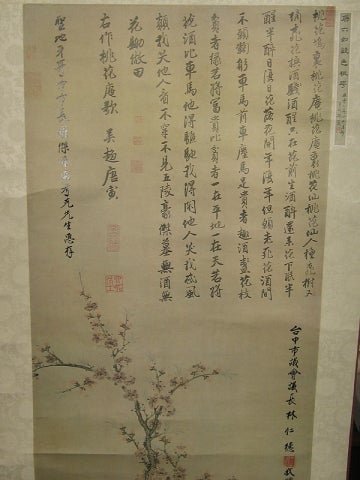 桃花塢裏桃花庵桃花庵裏桃花仙桃花仙人種桃樹又
摘桃花換酒錢酒醒只在花前坐酒醉還來花下眠半
醒半醉日復日花落花開年復年但願老死花酒間
不願鞠躬車馬前車塵馬足貴者趣酒盞花枝
貧者緣若將富貴比貧者一在平地一在天若將
比車馬他得驅馳我得閒他人笑我忒風
顛我笑他人看不穿不見五陵豪傑墓無酒無
花鋤做田
右作桃花庵歌 吳趨唐寅
聖地牙哥 先生惠存
台中市議會議長林仁德